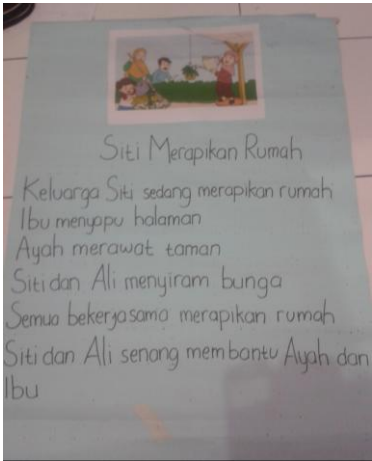 Siti Merapikan Rumah
Keluarga Siti sedang merapikan rumah
Ibu menyapu halaman
Ayah merawat taman
Siti dan Ali menyiram bunga
Semua bekerjasama merapikan rumah
Siti dan Ali senang membantu Ayah dan
Ibu